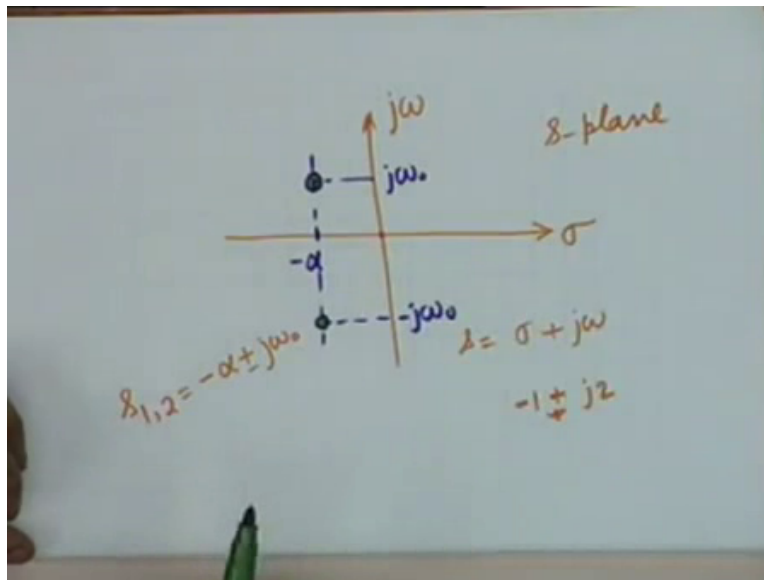 jω
s-plane
jω₀
σ
-α
-jω₀
s = σ + jω
s₁,₂ = -α ± jω₀
-1 ± j2